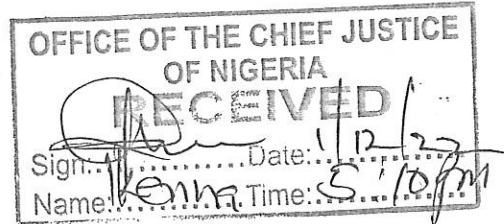 OFFICE OF THE CHIEF JUSTICE
OF NIGERIA
RECEIVED
Sign:.............Date: 1/12/22
Name: Ikenna Time: 5:10pm